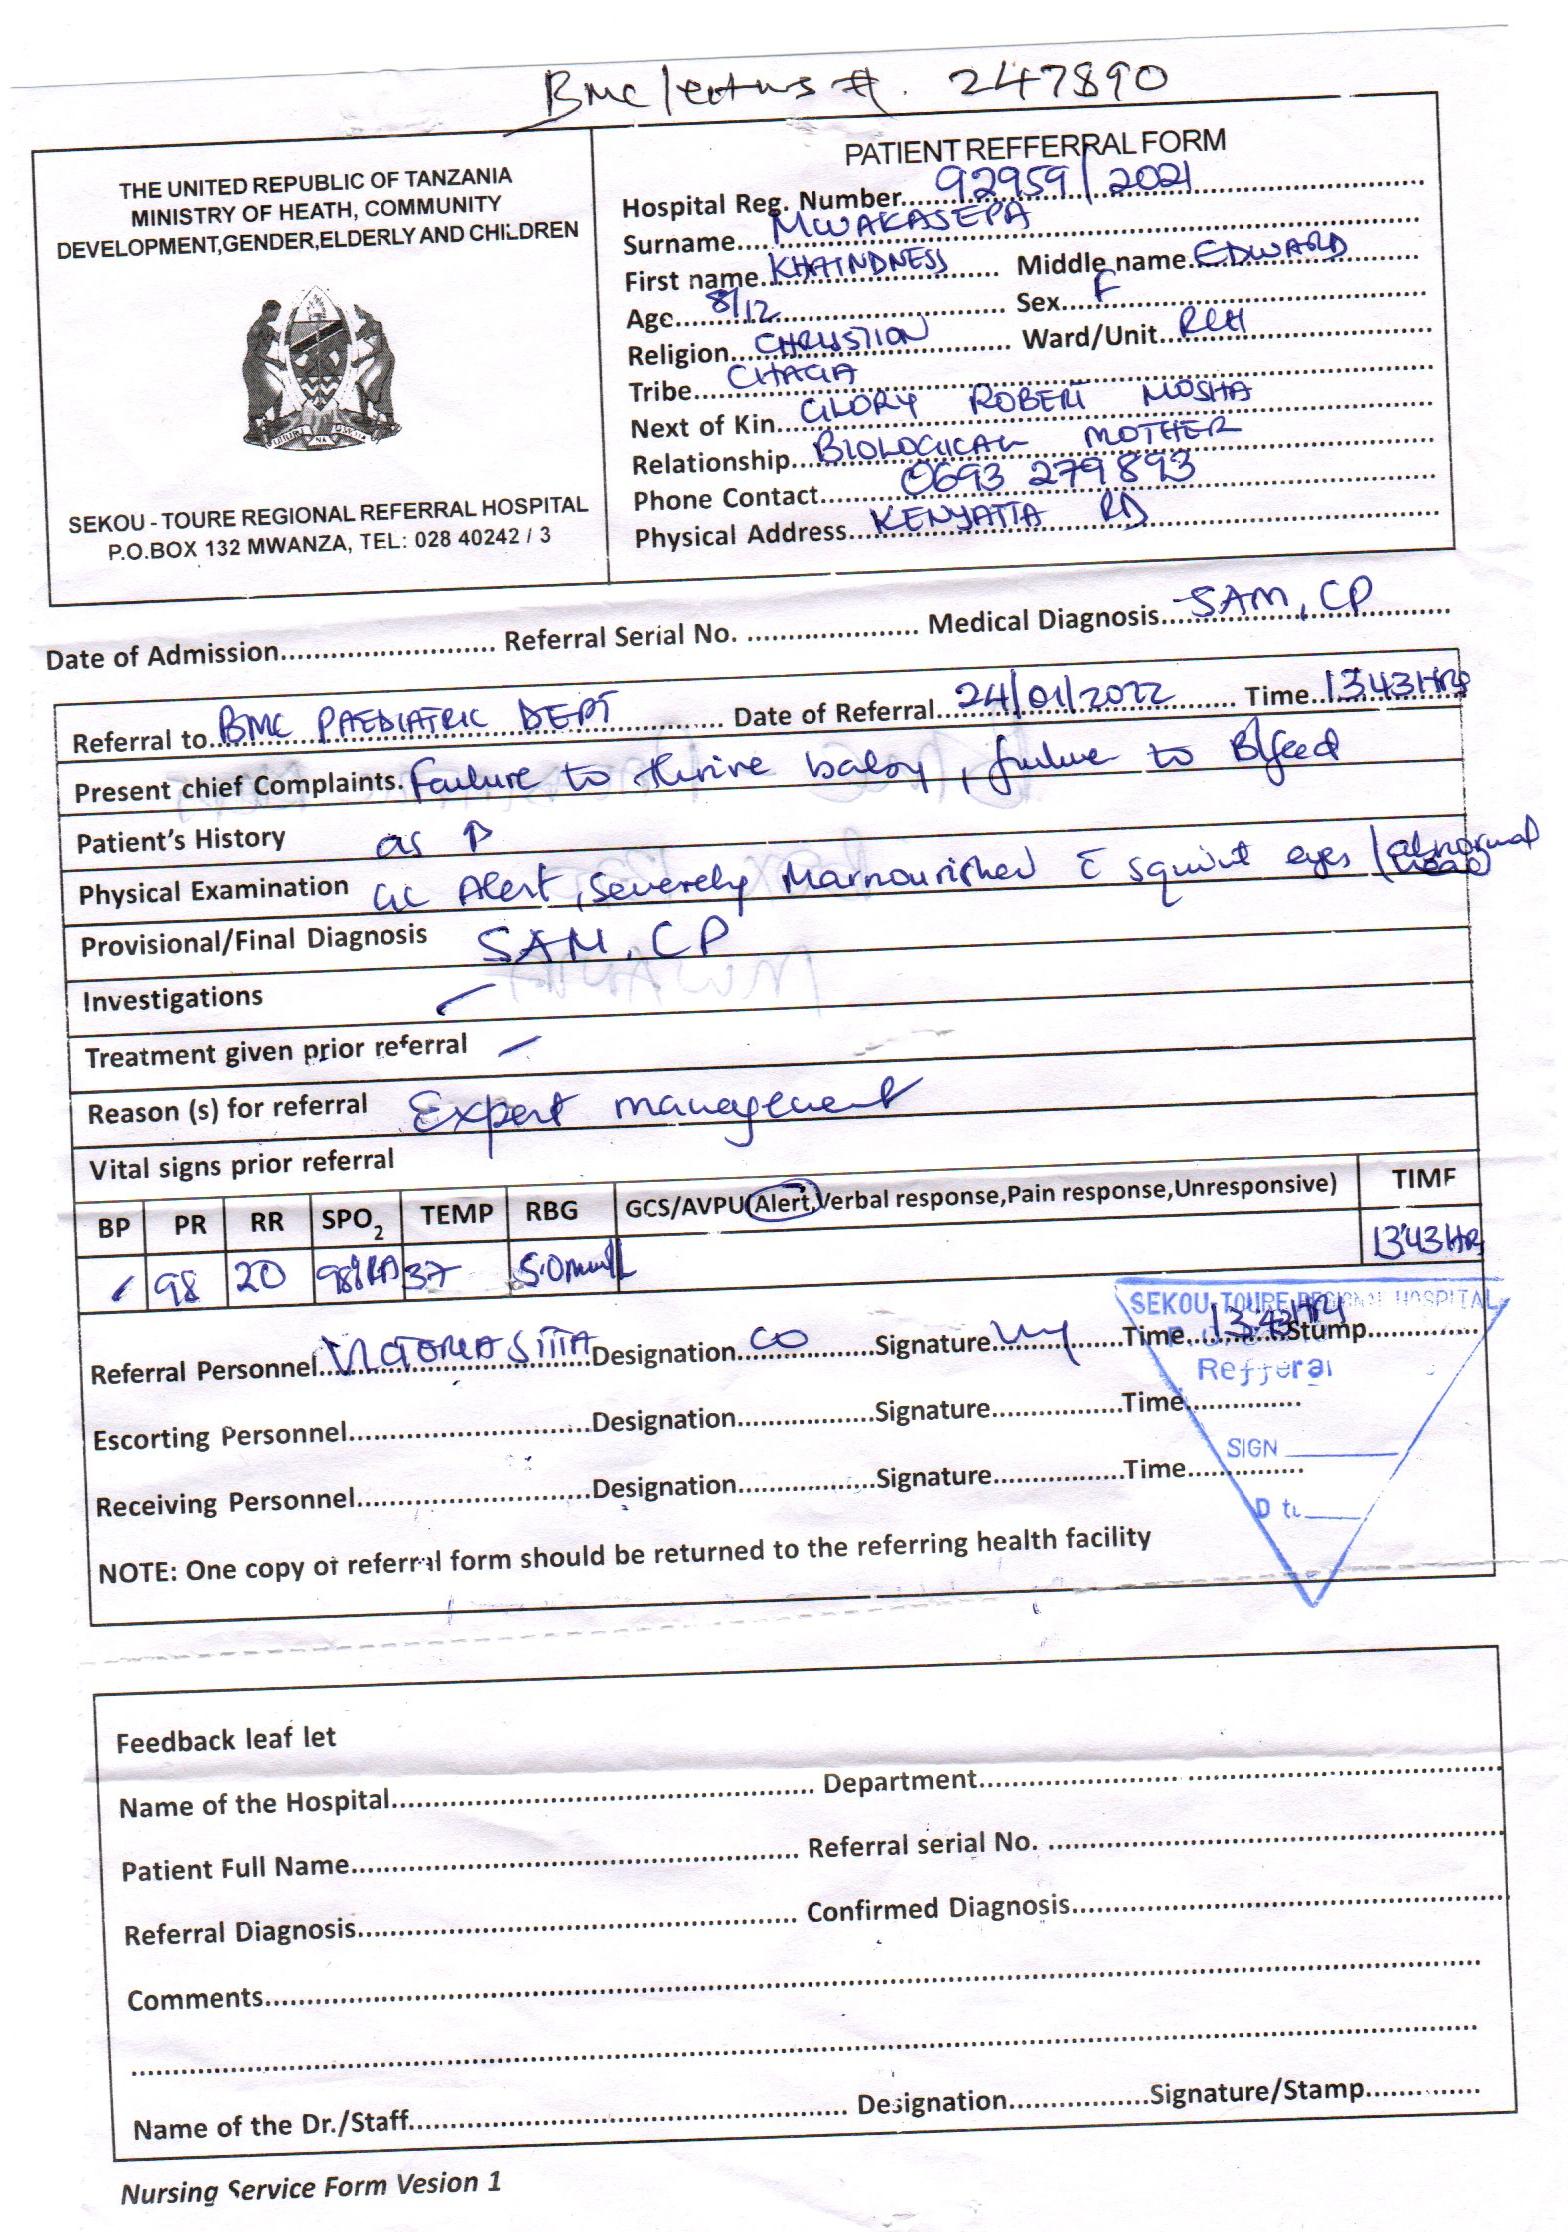 Bmc 247890
THE UNITED REPUBLIC OF TANZANIA
MINISTRY OF HEATH, COMMUNITY
DEVELOPMENT,GENDER,ELDERLY AND CHILDREN
SEKOU - TOURE REGIONAL REFERRAL HOSPITAL
P.O.BOX 132 MWANZA, TEL: 028 40242 / 3
PATIENT REFFERRAL FORM
Hospital Reg. Number 92959/2021
Surname MWAKASEPA
First name KHAINDNESS Middle name EDWARD
Age 8/12 Sex F
Religion CHRISTION Ward/Unit RCH
Tribe CHAGA
Next of Kin GLORY ROBERT MOSHA
Relationship BIOLOGICAL MOTHER
Phone Contact 0693 279893
Physical Address KENYATTA RD
Date of Admission Referral Serial No. Medical Diagnosis SAM, CP
Referral to BMC PAEDIATRIC DEPT Date of Referral 24/01/2022 Time 1343HRS
Present chief Complaints. Failure to thrive baby, failure to B/feed
Patient's History as ↑
Physical Examination GC Alert, Severely Marnourished c̄ squint eyes (abnormal head)
Provisional/Final Diagnosis SAM, CP
Investigations -
Treatment given prior referral -
Reason (s) for referral Expert management
Vital signs prior referral
BP PR RR SPO2 TEMP RBG GCS/AVPU(Alert,Verbal response,Pain response,Unresponsive) TIME
- 98 20 98% RA 37 5.0mmol/L 1343HRS
Referral Personnel VICTORIA SITTA Designation CO Signature Time 13:43HRS Stump
Escorting Personnel Designation Signature Time
Receiving Personnel Designation Signature Time
NOTE: One copy of referral form should be returned to the referring health facility
SEKOU-TOURE REGIONAL HOSPITAL
Refferal
SIGN
Feedback leaf let
Name of the Hospital Department
Patient Full Name Referral serial No.
Referral Diagnosis Confirmed Diagnosis
Comments
Name of the Dr./Staff Designation Signature/Stamp
Nursing Service Form Vesion 1